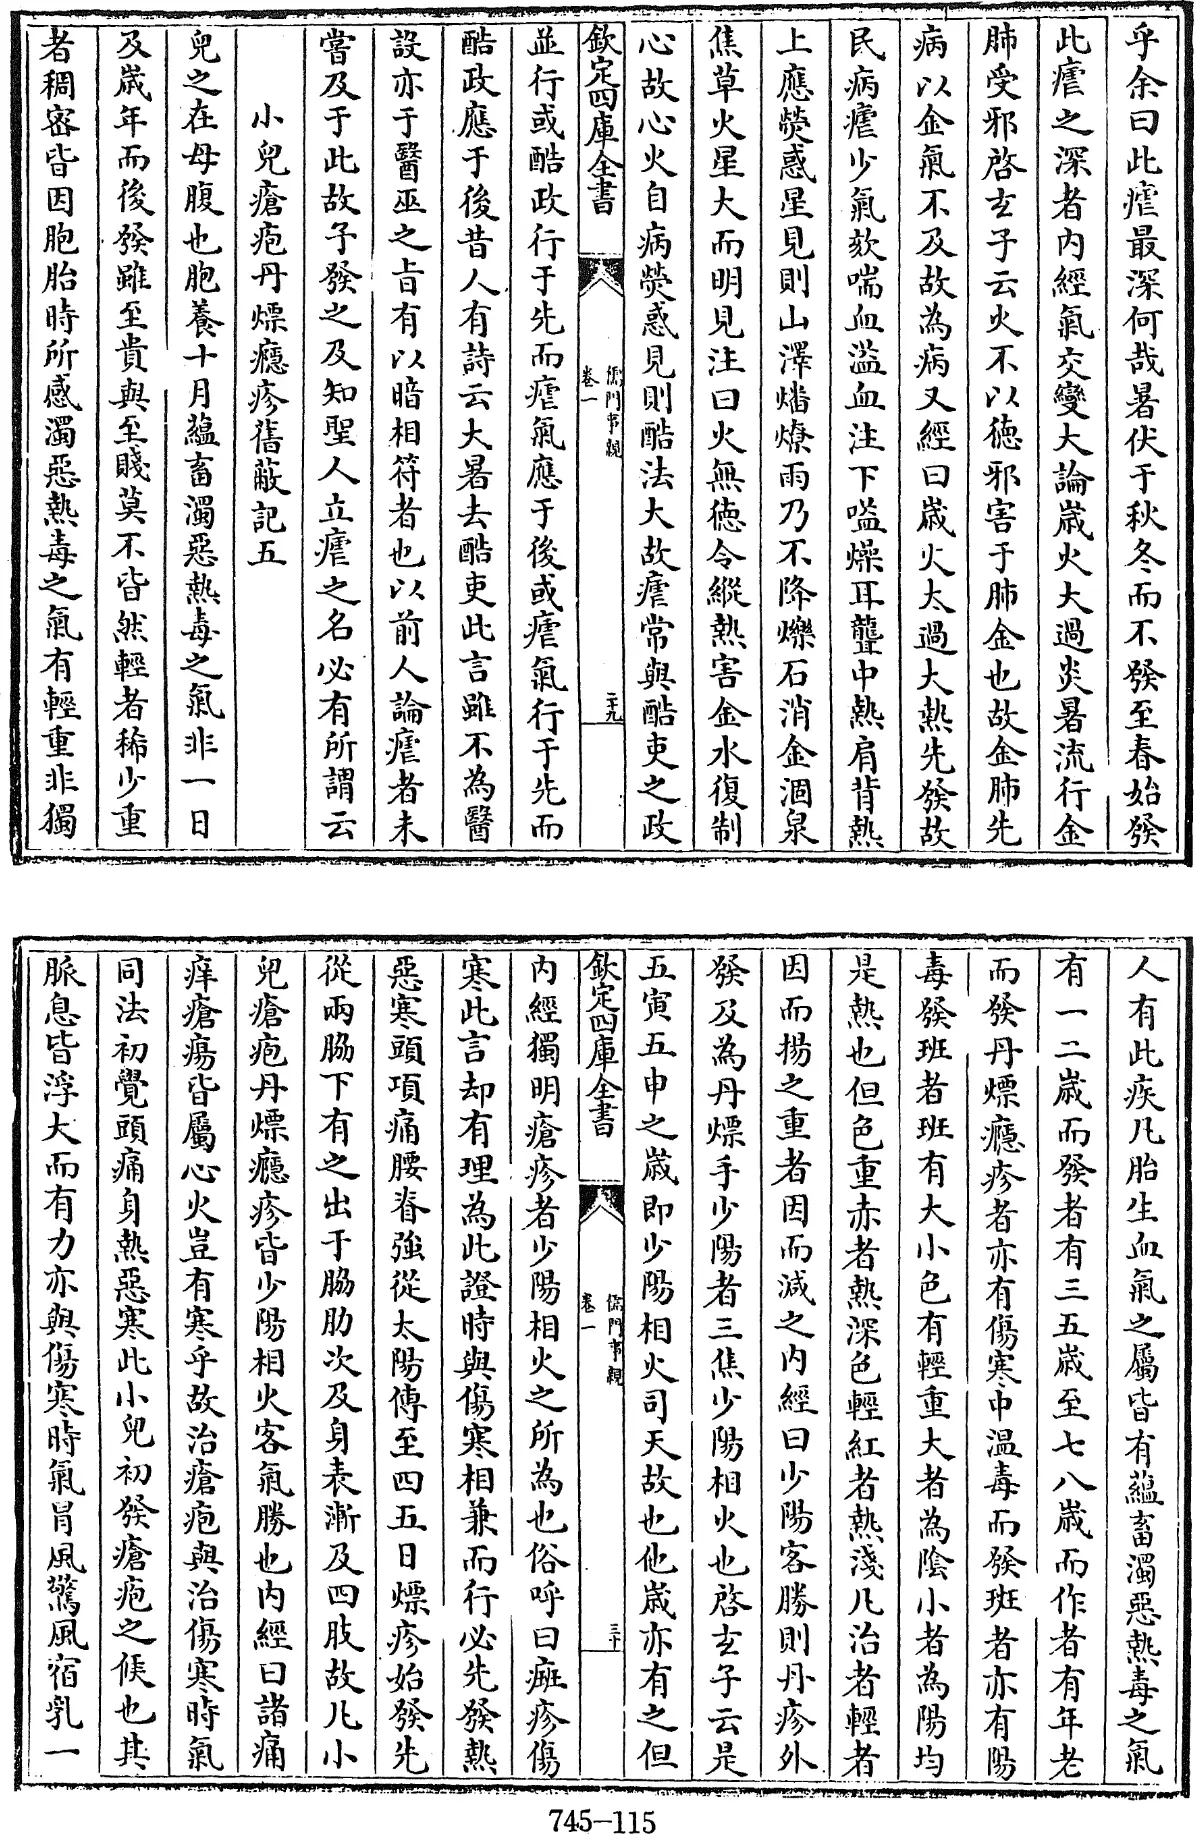 乎余曰此瘧最深何哉暑伏于秋冬而不發至春始發
此瘧之深者内經氣交變大論嵗火太過炎暑流行金
肺受邪啓玄子云火不以徳邪害于肺金也故金肺先
病以金氣不及故為病又經曰嵗火太過大熱先發故
民病瘧少氣欬喘血溢血注下嗌燥耳聾中熱肩背熱
上應熒惑星見則山澤燔燎雨乃不降爍石消金涸泉
焦草火星大而明見注曰火無徳令縱熱害金水復制
心故心火自病熒惑見則酷法大故瘧常與酷吏之政
欽定四庫全書
儒門事親
卷一
二十九
並行或酷政行于先而瘧氣應于後或瘧氣行于先而
酷政應于後昔人有詩云大暑去酷吏此言雖不為醫
設亦于醫巫之㫖有以暗相符者也以前人論瘧者未
嘗及于此故予發之及知聖人立瘧之名必有所謂云
小兒瘡疱丹熛癮疹舊蔽記五
兒之在母腹也胞養十月蘊畜濁惡熱毒之氣非一日
及嵗年而後發雖至貴與至賤莫不皆然輕者稀少重
者稠宻皆因胞胎時所感濁惡熱毒之氣有輕重非獨
人有此疾凡胎生血氣之屬皆有蘊畜濁惡熱毒之氣
有一二嵗而發者有三五嵗至七八嵗而作者有年老
而發丹熛癮疹者亦有傷寒中温毒而發斑者亦有陽
毒發斑者斑有大小色有輕重大者為陰小者為陽均
是熱也但色重赤者熱深色輕紅者熱淺凡治者輕者
因而揚之重者因而減之内經曰少陽客勝則丹疹外
發及為丹熛手少陽者三焦少陽相火也啓玄子云是
五寅五申之嵗即少陽相火司天故也他嵗亦有之但
欽定四庫全書
儒門事親
卷一
三十
内經獨明瘡疹者少陽相火之所為也俗呼曰斑疹傷
寒此言却有理為此證時與傷寒相兼而行必先發熱
惡寒頭項痛腰脊強從太陽傳至四五日熛疹始發先
從兩脇下有之出于脇肋次及身表漸及四肢故凡小
兒瘡疱丹熛癮疹皆少陽相火客氣勝也内經曰諸痛
痒瘡瘍皆屬心火豈有寒乎故治瘡疱與治傷寒時氣
同法初覺頭痛身熱惡寒此小兒初發瘡疱之候也其
脈息皆浮大而有力亦與傷寒時氣冒風驚風宿乳一
745-115